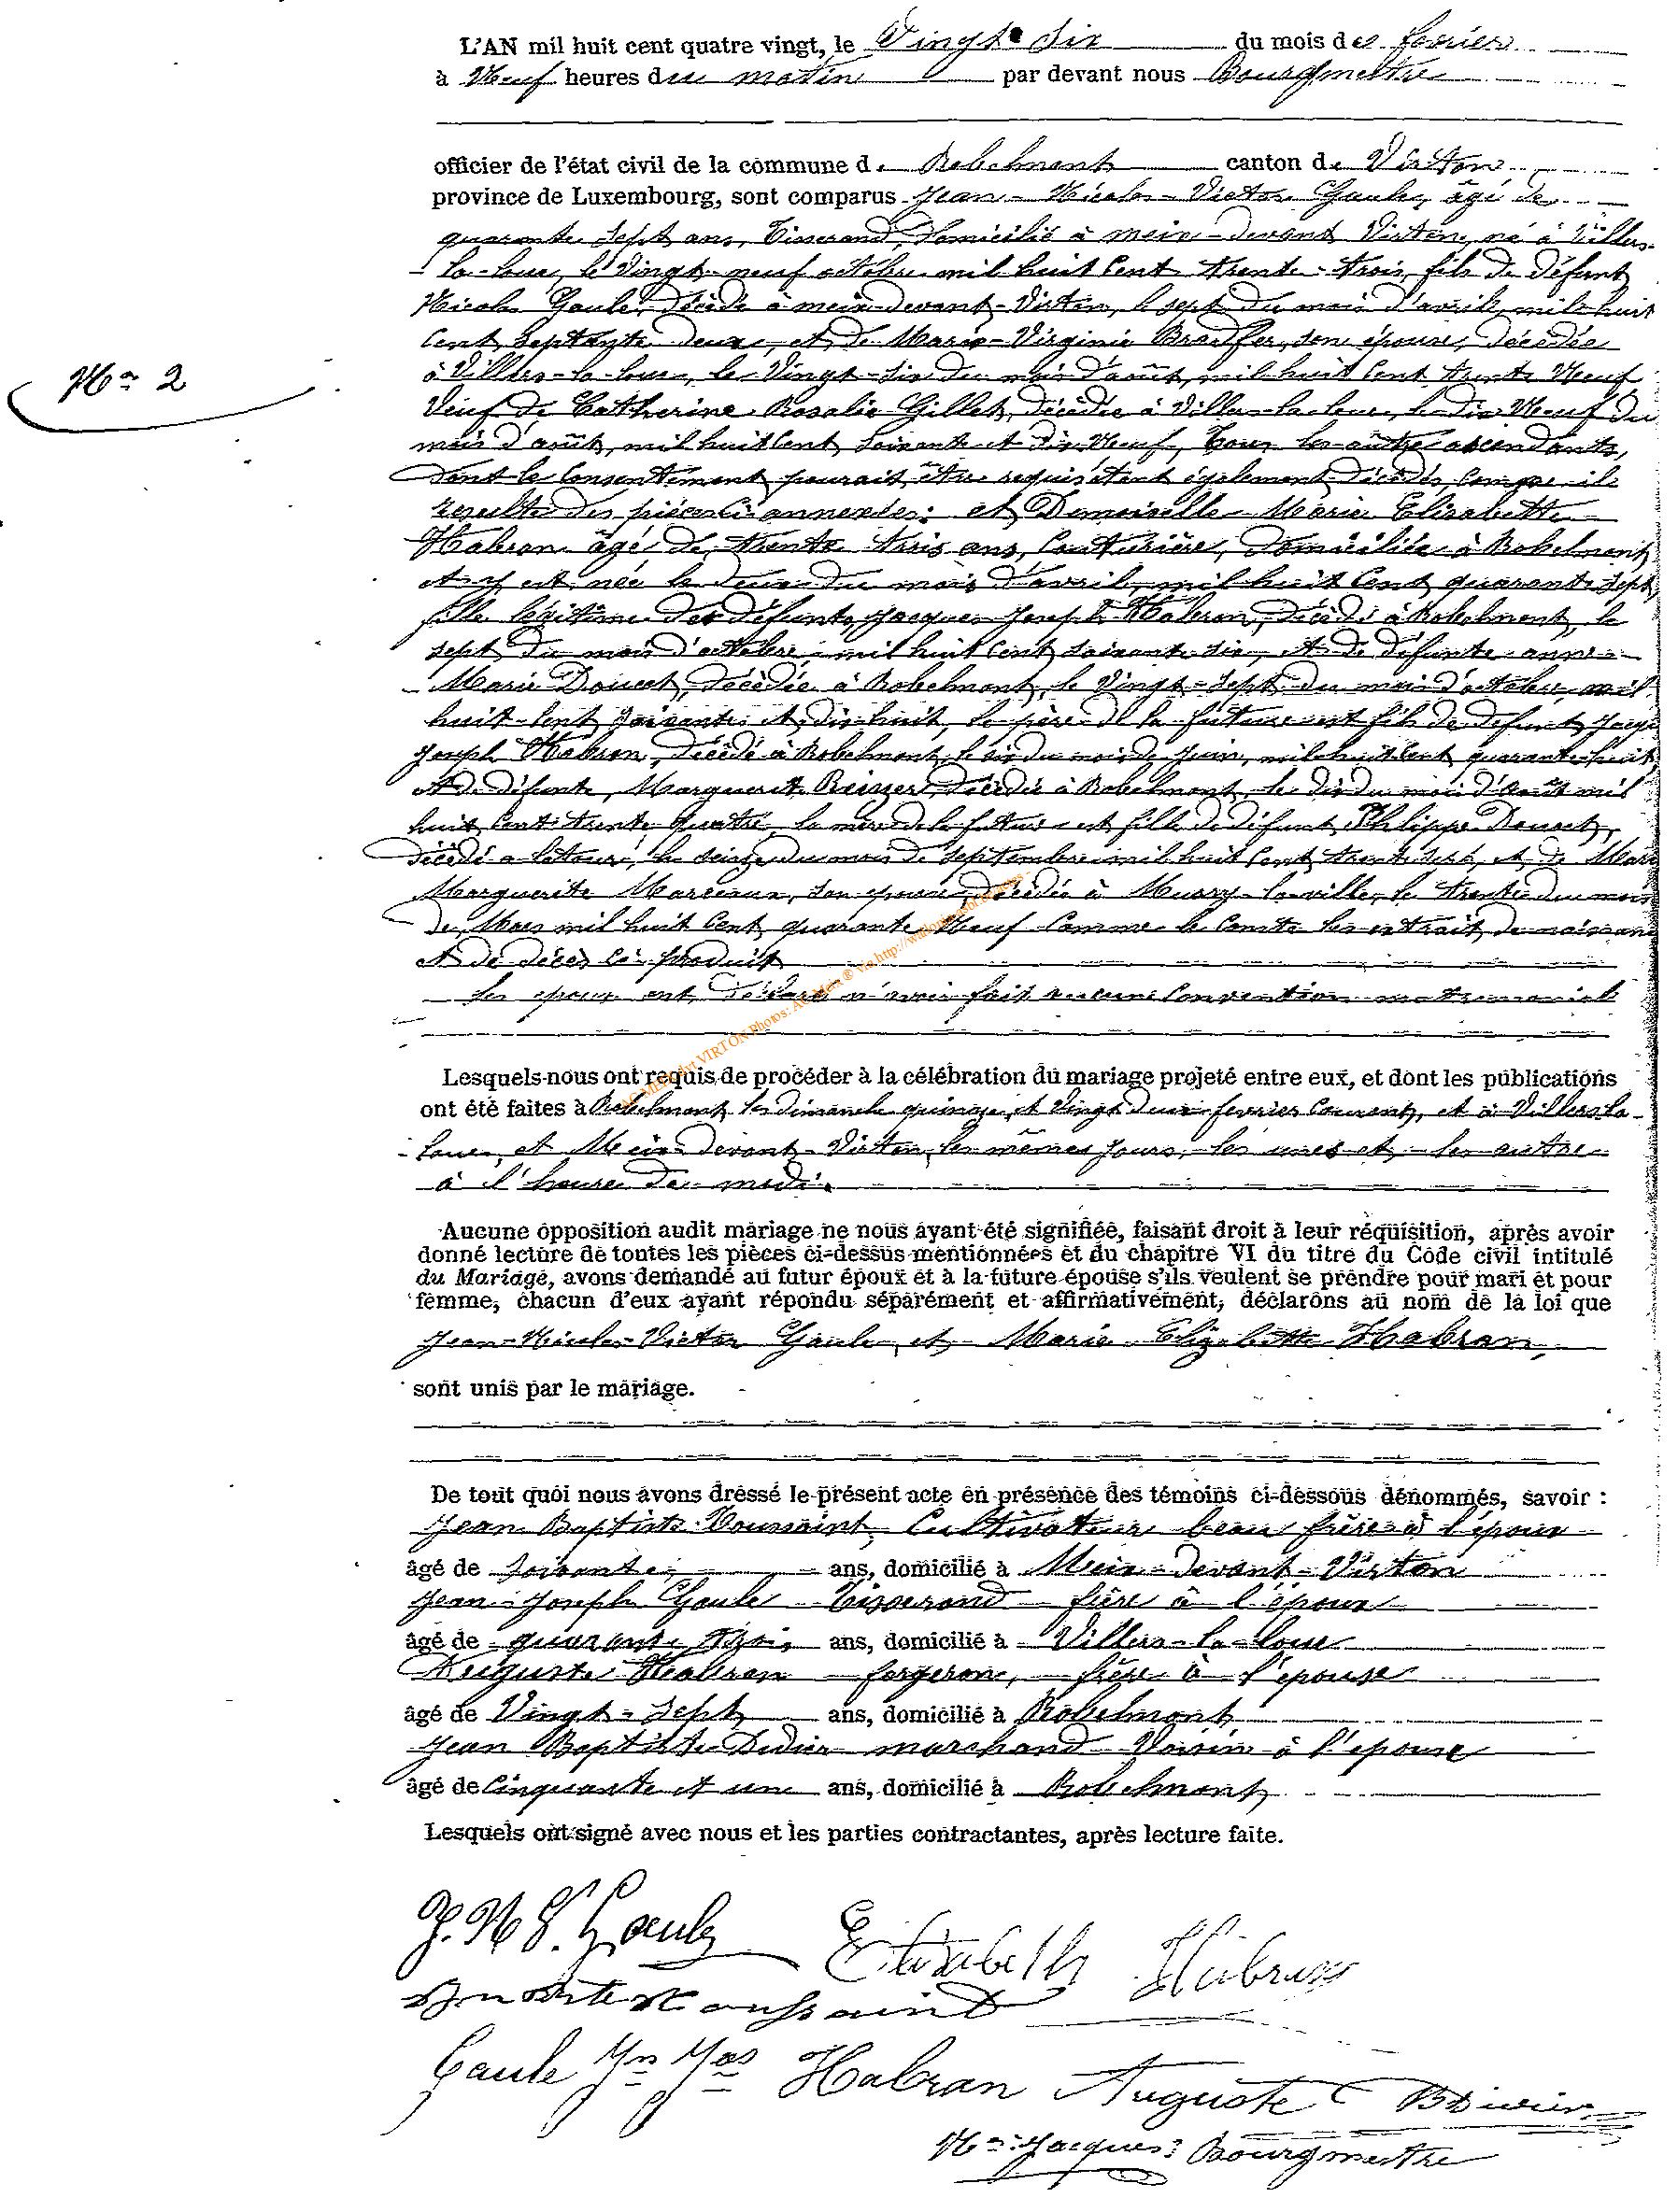 L'AN mil huit cent quatre vingt, le Vingt Six du mois de fevrier
à Neuf heures du matin par devant nous Bourgmestre
officier de l'état civil de la commune de Robelmont canton de Virton
province de Luxembourg, sont comparus Jean-Nicolas-Victor Gaule, âgé de
quarante Sept ans, Tisserand, domicilié à meix-devant Virton, né à Villers-
-la-loue, le Vingt-neuf octobre mil huit Cent trente-trois, fils de défunt
Nicolas Gaule, décédé à meix-devant-Virton, le sept du mois d'avril, mil huit
Cent Septante deux, et de Marie-Virginie son épouse, décédée
à Villers-la-loue, le Vingt-Six du mois d'août, mil huit Cent trente Neuf
Veuf de Catherine Rosalie Gillet, décédée à Villers-la-loue, le dix Neuf du
mois d'août, mil huit Cent Soixante et dix Neuf, Tous les autre ascendants,
dont le Consentement pourait être requis étant également décédés, Comme il
resulte des pièces Ci-annexées: et Demoiselle Marie Elisabette
Habran âgé de trente trois ans, Couturière, domiciliée à Robelmont
et y est née le deux du mois d'avril, mil huit Cent quarante sept
fille légitime des défunts, Jacques Joseph Habran, décédé à Robelmont, le
sept du mois d'octobre, mil huit Cent soixante six, et de défunte anne-
-Marie Doucet, décédée à Robelmont, le Vingt-Sept du mois d'octobre, mil
huit-Cent Soixante et dix huit, le père de la future est fils de defunt
Joseph Habran, décédé à Robelmont, le six du mois de Juin, mil huit Cent quarante huit
et de défunte, Marguerite décédée à Robelmont, le dix du mois d'août mil
huit Cent trente quatre, la mère de la future est fille de défunt Philippe Doucet,
décédé a latour, le seize du mois de septembre mil huit Cent trente sept, et de Marie
Marguerite son epouse, décédée à Mussy-la-ville, le trente du mois
de Mars mil huit Cent quarante Neuf Comme le Conste les extrait de naissance
et de décès Ci-produit
Les epoux ont déclaré n'avoir fait aucune Convention matrimoniale
Lesquels nous ont requis de procéder à la célébration du mariage projeté entre eux, et dont les publications
ont été faites à Robelmont les dimanche quinze et Vingt deux fevrier Courant, et à Villers-la-
-loue, et Meix-devant-Virton, les mêmes jours, les unes et les autre
à l'heure de midi.
Aucune opposition audit mariage ne nous ayant été signifiée, faisant droit à leur réquisition, après avoir
donné lecture de toutes les pièces ci-dessus mentionnées et du chapitre VI du titre du Code civil intitulé
du Mariage, avons demandé au futur époux et à la future épouse s'ils veulent se prendre pour mari et pour
femme, chacun d'eux ayant répondu séparément et affirmativement, déclarons au nom de la loi que
Jean-Nicolas-Victor Gaule, et Marie Elizabette Habran,
sont unis par le mariage.
De tout quoi nous avons dressé le présent acte en présence des témoins ci-dessous dénommés, savoir :
Jean Baptiste Toussaint, Cultivateur beau frère à l'époux
âgé de soixante ans, domicilié à Meix-devant-Virton
Jean-Joseph Gaule Tisserand frère à l'époux
âgé de quarante trois ans, domicilié à Villers-la-loue
Auguste Habran forgeron, frère à l'épouse
âgé de Vingt-Sept ans, domicilié à Robelmont
Jean Baptiste Didier marchand Voisin à l'epouse
âgé de Cinquante et un ans, domicilié à Robelmont
Lesquels ont signé avec nous et les parties contractantes, après lecture faite.
J. N. V. Gaule Elisabeth Habran
Toussaint
Gaule Habran Auguste
Jacques Bourgmestre
No 2